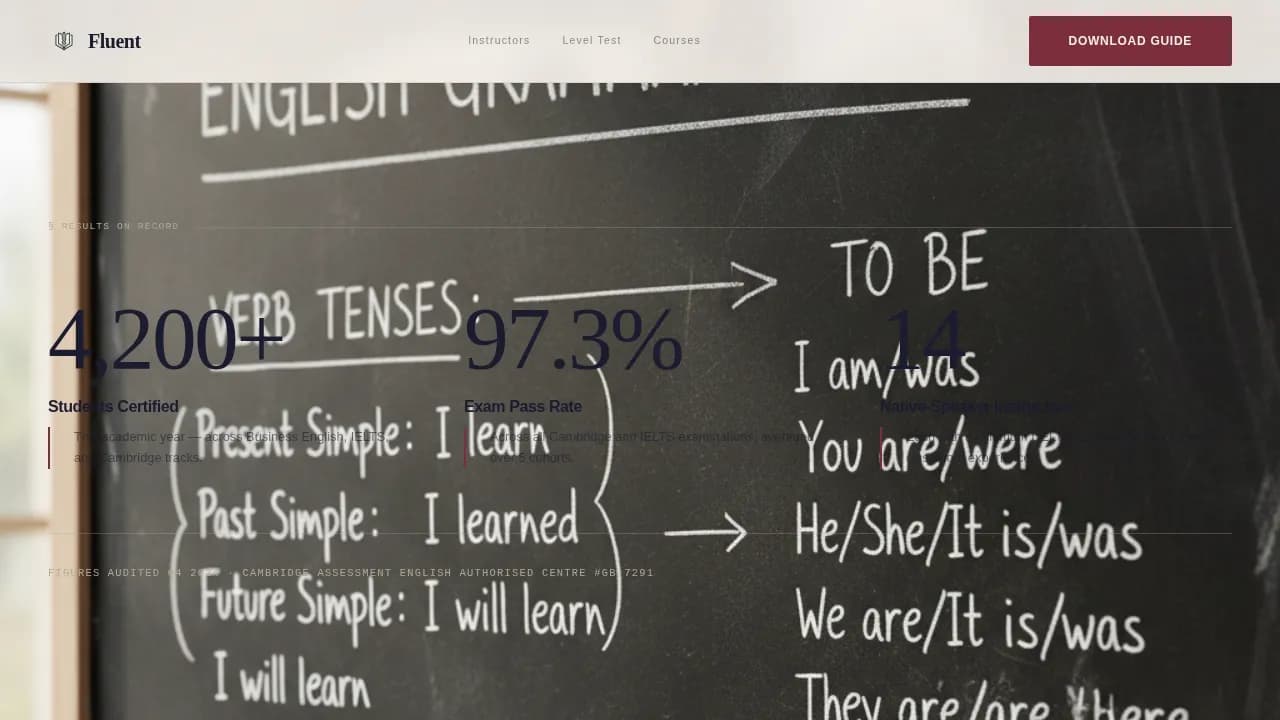 Fluent
Instructors
Level Test
Courses
DOWNLOAD GUIDE
ENGLISH
5 RESULTS ON RECORD
TO BE
VERB TENSES:
4,200+
97.3%
14
I am/was
Students Certified
Exam Pass Rate
Native-Speaker
Present Simple: I learn
This academic year — across Business English, IELTS,
and Cambridge tracks.
Across all Cambridge and IELTS examinations, averaged
over 5 cohorts.
You are/were
Past Simple: I learned
He/She/It is/was
FIGURES AUDITED CAMBRIDGE ASSESSMENT ENGLISH AUTHORISED CENTRE
Future Simple: I will learn
We are/It is/was
I will learn
They are/are